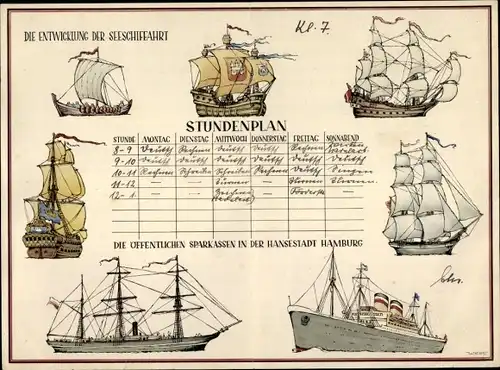 DIE ENTWICKLUNG DER SEESCHIFFAHRT
Kl. 7
STUNDENPLAN
STUNDE MONTAG DIENSTAG MITTWOCH DONNERSTAG FREITAG SONNABEND
8-9 Deutsch Rechnen Deutsch Deutsch Rechnen
9-10 Deutsch Deutsch Deutsch Deutsch Deutsch Deutsch
10-11 Rechnen Schreiben Schreiben Rechnen Deutsch Singen
11-12 — — Turnen — Turnen Turnen
12-1 — — — —
DIE ÖFFENTLICHEN SPARKASSEN IN DER HANSESTADT HAMBURG